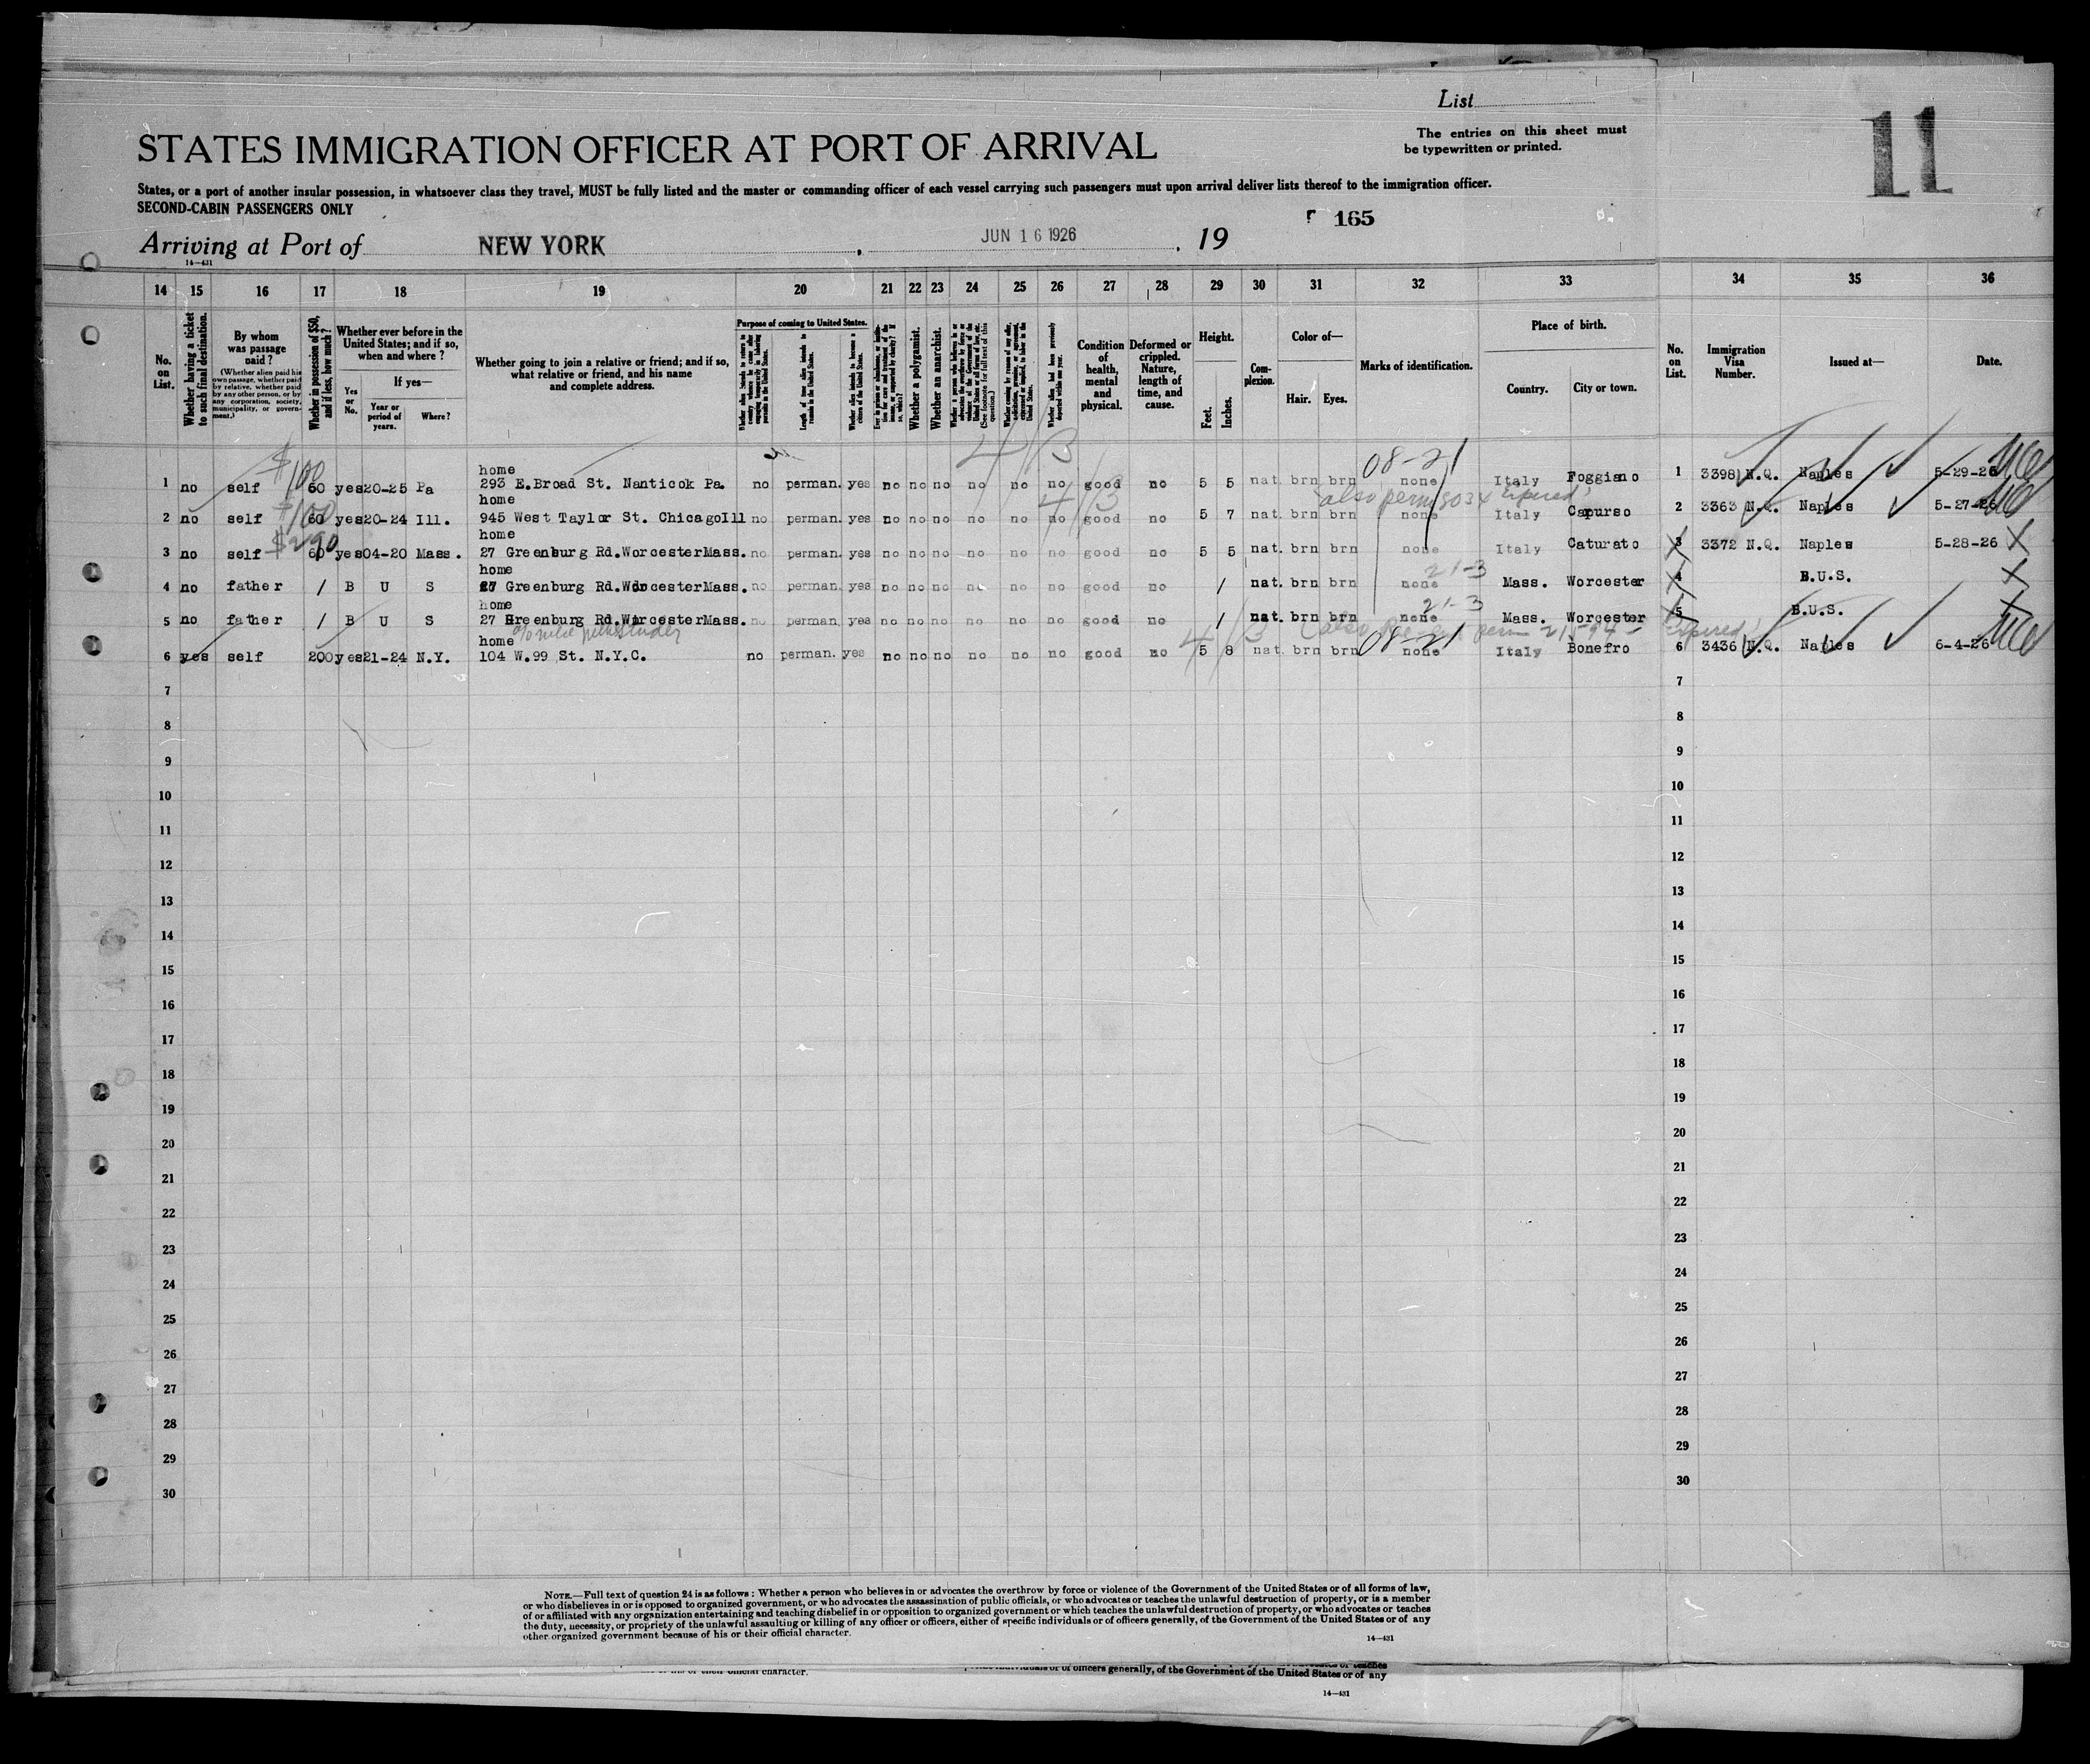 List
The entries on this sheet must
be typewritten or printed.
11
STATES IMMIGRATION OFFICER AT PORT OF ARRIVAL
States, or a port of another insular possession, in whatsoever class they travel, MUST be fully listed and the master or commanding officer of each vessel carrying such passengers must upon arrival deliver lists thereof to the immigration officer.
SECOND-CABIN PASSENGERS ONLY
165
Arriving at Port of NEW YORK, JUN 16 1926, 19
14—431
14 15 16 17 18 19 20 21 22 23 24 25 26 27 28 29 30 31 32 33 34 35 36
No. on List.
Whether having a ticket to such final destination.
By whom was passage paid?
(Whether alien paid his own passage, whether paid by relative, whether paid by any other person, or by any corporation, society, municipality, or government.)
Whether in possession of $50, and if less, how much?
Whether ever before in the United States; and if so, when and where?
Yes or No.
If yes—
Year or period of years.
Where?
Whether going to join a relative or friend; and if so, what relative or friend, and his name and complete address.
Purpose of coming to United States.
Length of time alien intends to remain in the United States.
Whether alien intends to become a citizen of the United States.
Whether a polygamist.
Whether an anarchist.
(See footnote for full text of this question.)
Condition of health, mental and physical.
Deformed or crippled. Nature, length of time, and cause.
Height.
Feet.
Inches.
Complexion.
Color of—
Hair. Eyes.
Marks of identification.
Place of birth.
Country. City or town.
No. on List.
Immigration Visa Number.
Issued at—
Date.
$100 4/3 08-21
home
1 no self 60 yes 20-25 Pa 293 E.Broad St. Nanticok Pa. no perman. yes no no no no no no good no 5 5 nat. brn brn none Italy Foggiano 1 3398 N.Q. Naples 5-29-26
$100 4/3 also perm expired
home
2 no self 60 yes 20-24 Ill. 945 West Taylor St. Chicago Ill no perman. yes no no no no no no good no 5 7 nat. brn brn none Italy Capurso 2 3363 N.Q. Naples 5-27-26
$290
home
3 no self 60 yes 04-20 Mass. 27 Greenburg Rd.WorcesterMass. no perman. yes no no no no no no good no 5 5 nat. brn brn none Italy Caturato 3 3372 N.Q. Naples 5-28-26 X
home 21-3
4 no father / B U S 27 Greenburg Rd.WorcesterMass. no perman. yes no no no no no no good no / nat. brn brn none Mass. Worcester 4 B.U.S. X
home 21-3
5 no father / B U S 27 Greenburg Rd.WorcesterMass. no perman. yes no no no no no no good no / nat. brn brn none Mass. Worcester 5 B.U.S. X
home 4/3 08-21
6 yes self 200 yes 21-24 N.Y. 104 W.99 St. N.Y.C. no perman. yes no no no no no no good no 5 8 nat. brn brn none Italy Bonefro 6 3436 N.Q. Naples 6-4-26
7 7
8 8
9 9
10 10
11 11
12 12
13 13
14 14
15 15
16 16
17 17
18 18
19 19
20 20
21 21
22 22
23 23
24 24
25 25
26 26
27 27
28 28
29 29
30 30
NOTE.—Full text of question 24 is as follows: Whether a person who believes in or advocates the overthrow by force or violence of the Government of the United States or of all forms of law,
or who disbelieves in or is opposed to organized government, or who advocates the assassination of public officials, or who advocates or teaches the unlawful destruction of property, or is a member
of or affiliated with any organization entertaining and teaching disbelief in or opposition to organized government or which teaches the unlawful destruction of property, or who advocates or teaches
the duty, necessity, or propriety of the unlawful assaulting or killing of any officer or officers, either of specific individuals or of officers generally, of the Government of the United States or of any
other organized government because of his or their official character.
14—431
official character.
of officers generally, of the Government of the United States or of any
14—431